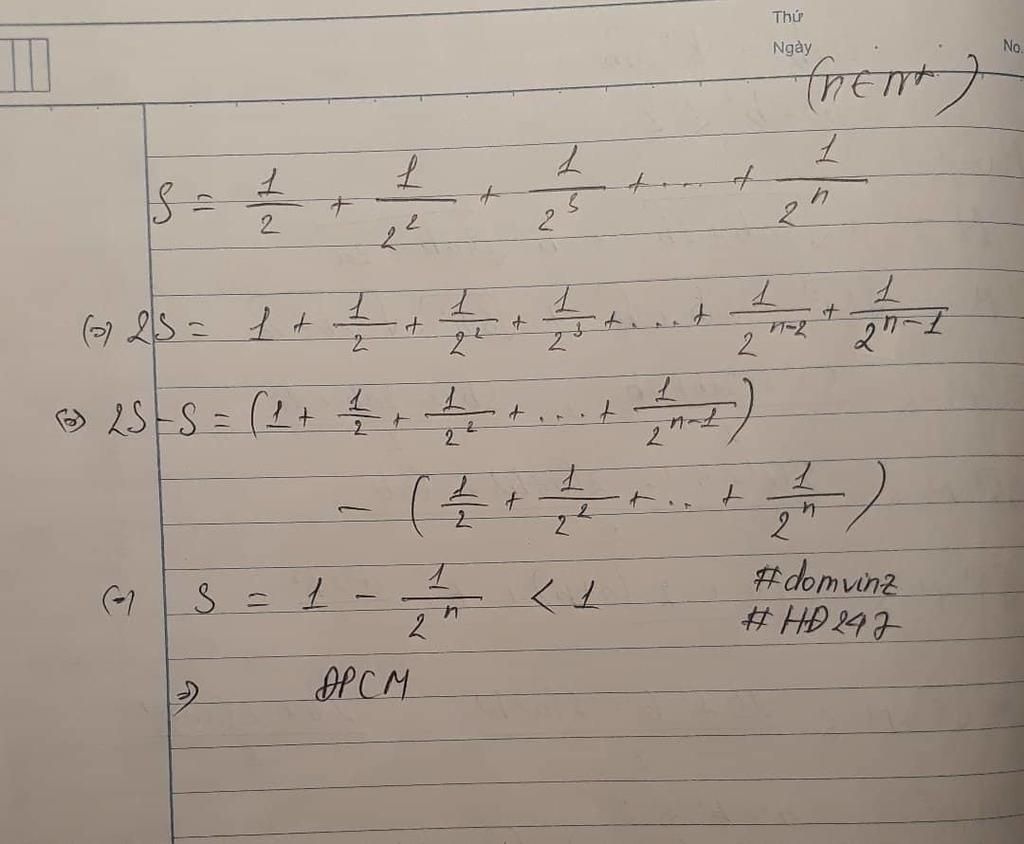 Thứ
Ngày
No.
(n ∈ n*)
S = 1/2 + 1/2^2 + 1/2^3 + ... + 1/2^n
(=) 2S = 1 + 1/2 + 1/2^2 + 1/2^3 + ... + 1/2^(n-2) + 1/2^(n-1)
(=) 2S - S = (1 + 1/2 + 1/2^2 + ... + 1/2^(n-1))
- (1/2 + 1/2^2 + .. + 1/2^n)
(=) S = 1 - 1/2^n < 1
#domvinz
#HĐ247
=> ĐPCM